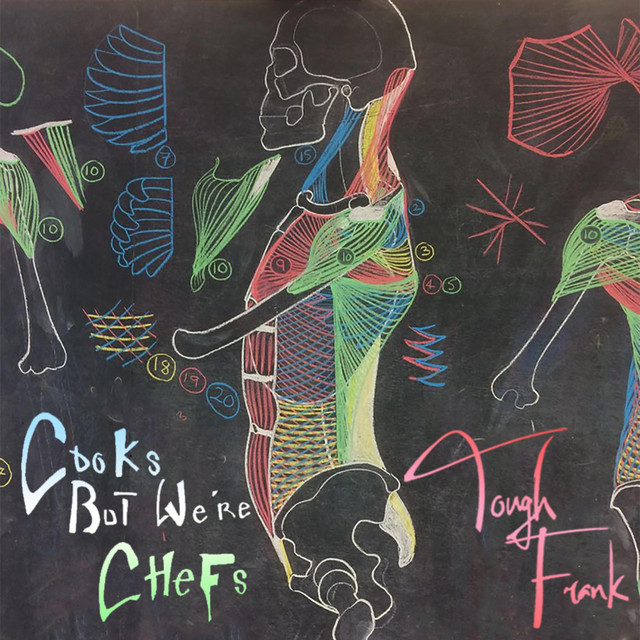 7
15
10
10
10
10
10
2
9
3
4 5
18
19
20
3
2
Cooks
But We're
Chefs
Tough
Frank